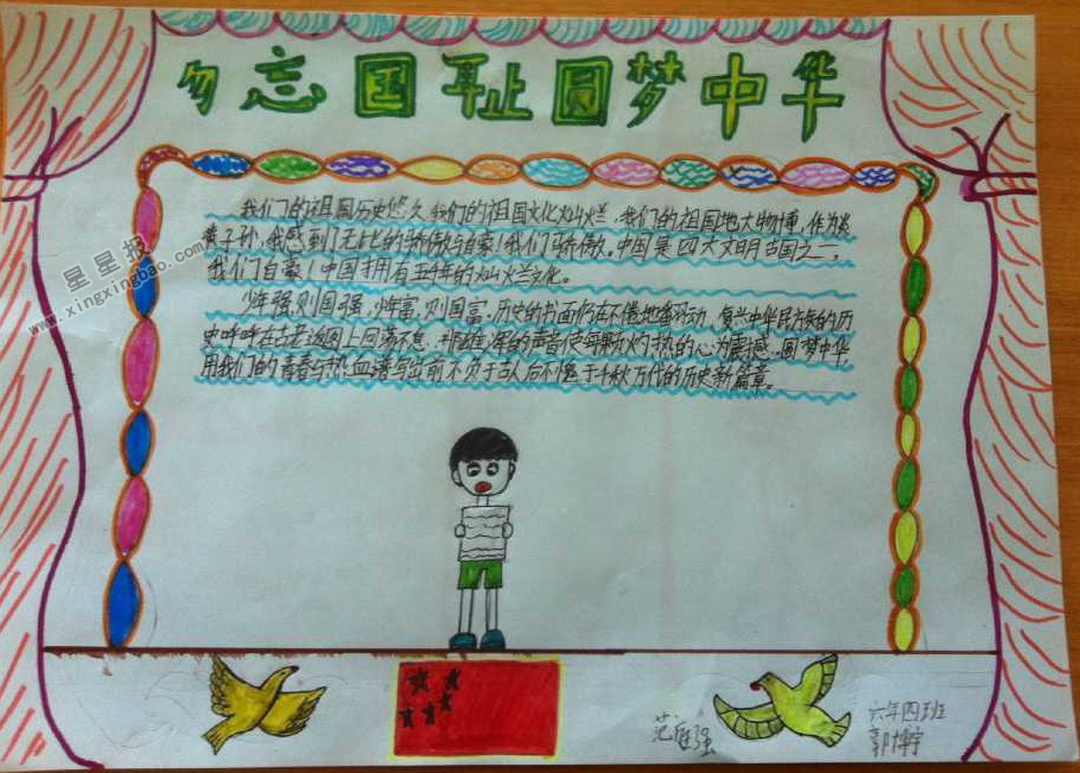 勿忘国耻圆梦中华
我们的祖国历史悠久,我们的祖国文化灿烂,我们的祖国地大物博,作为炎
黄子孙,我感到了无比的骄傲与自豪!我们骄傲。中国是四大文明古国之一,
我们自豪!中国拥有五千年的灿烂文化。
少年强,则国强,少年富,则国富,历史的书面仍在不倦地翻动,复兴中华民族的历
史呼呼在古老版图上回荡不息,雄浑的声音使每颗灼热的心为震撼,圆梦中华,
用我们的青春与热血谱写出前不负于古人后不愧于千秋万代的历史新篇章。
范胜强
六年四班
郭博宇
星星报
www.xingxingbao.com